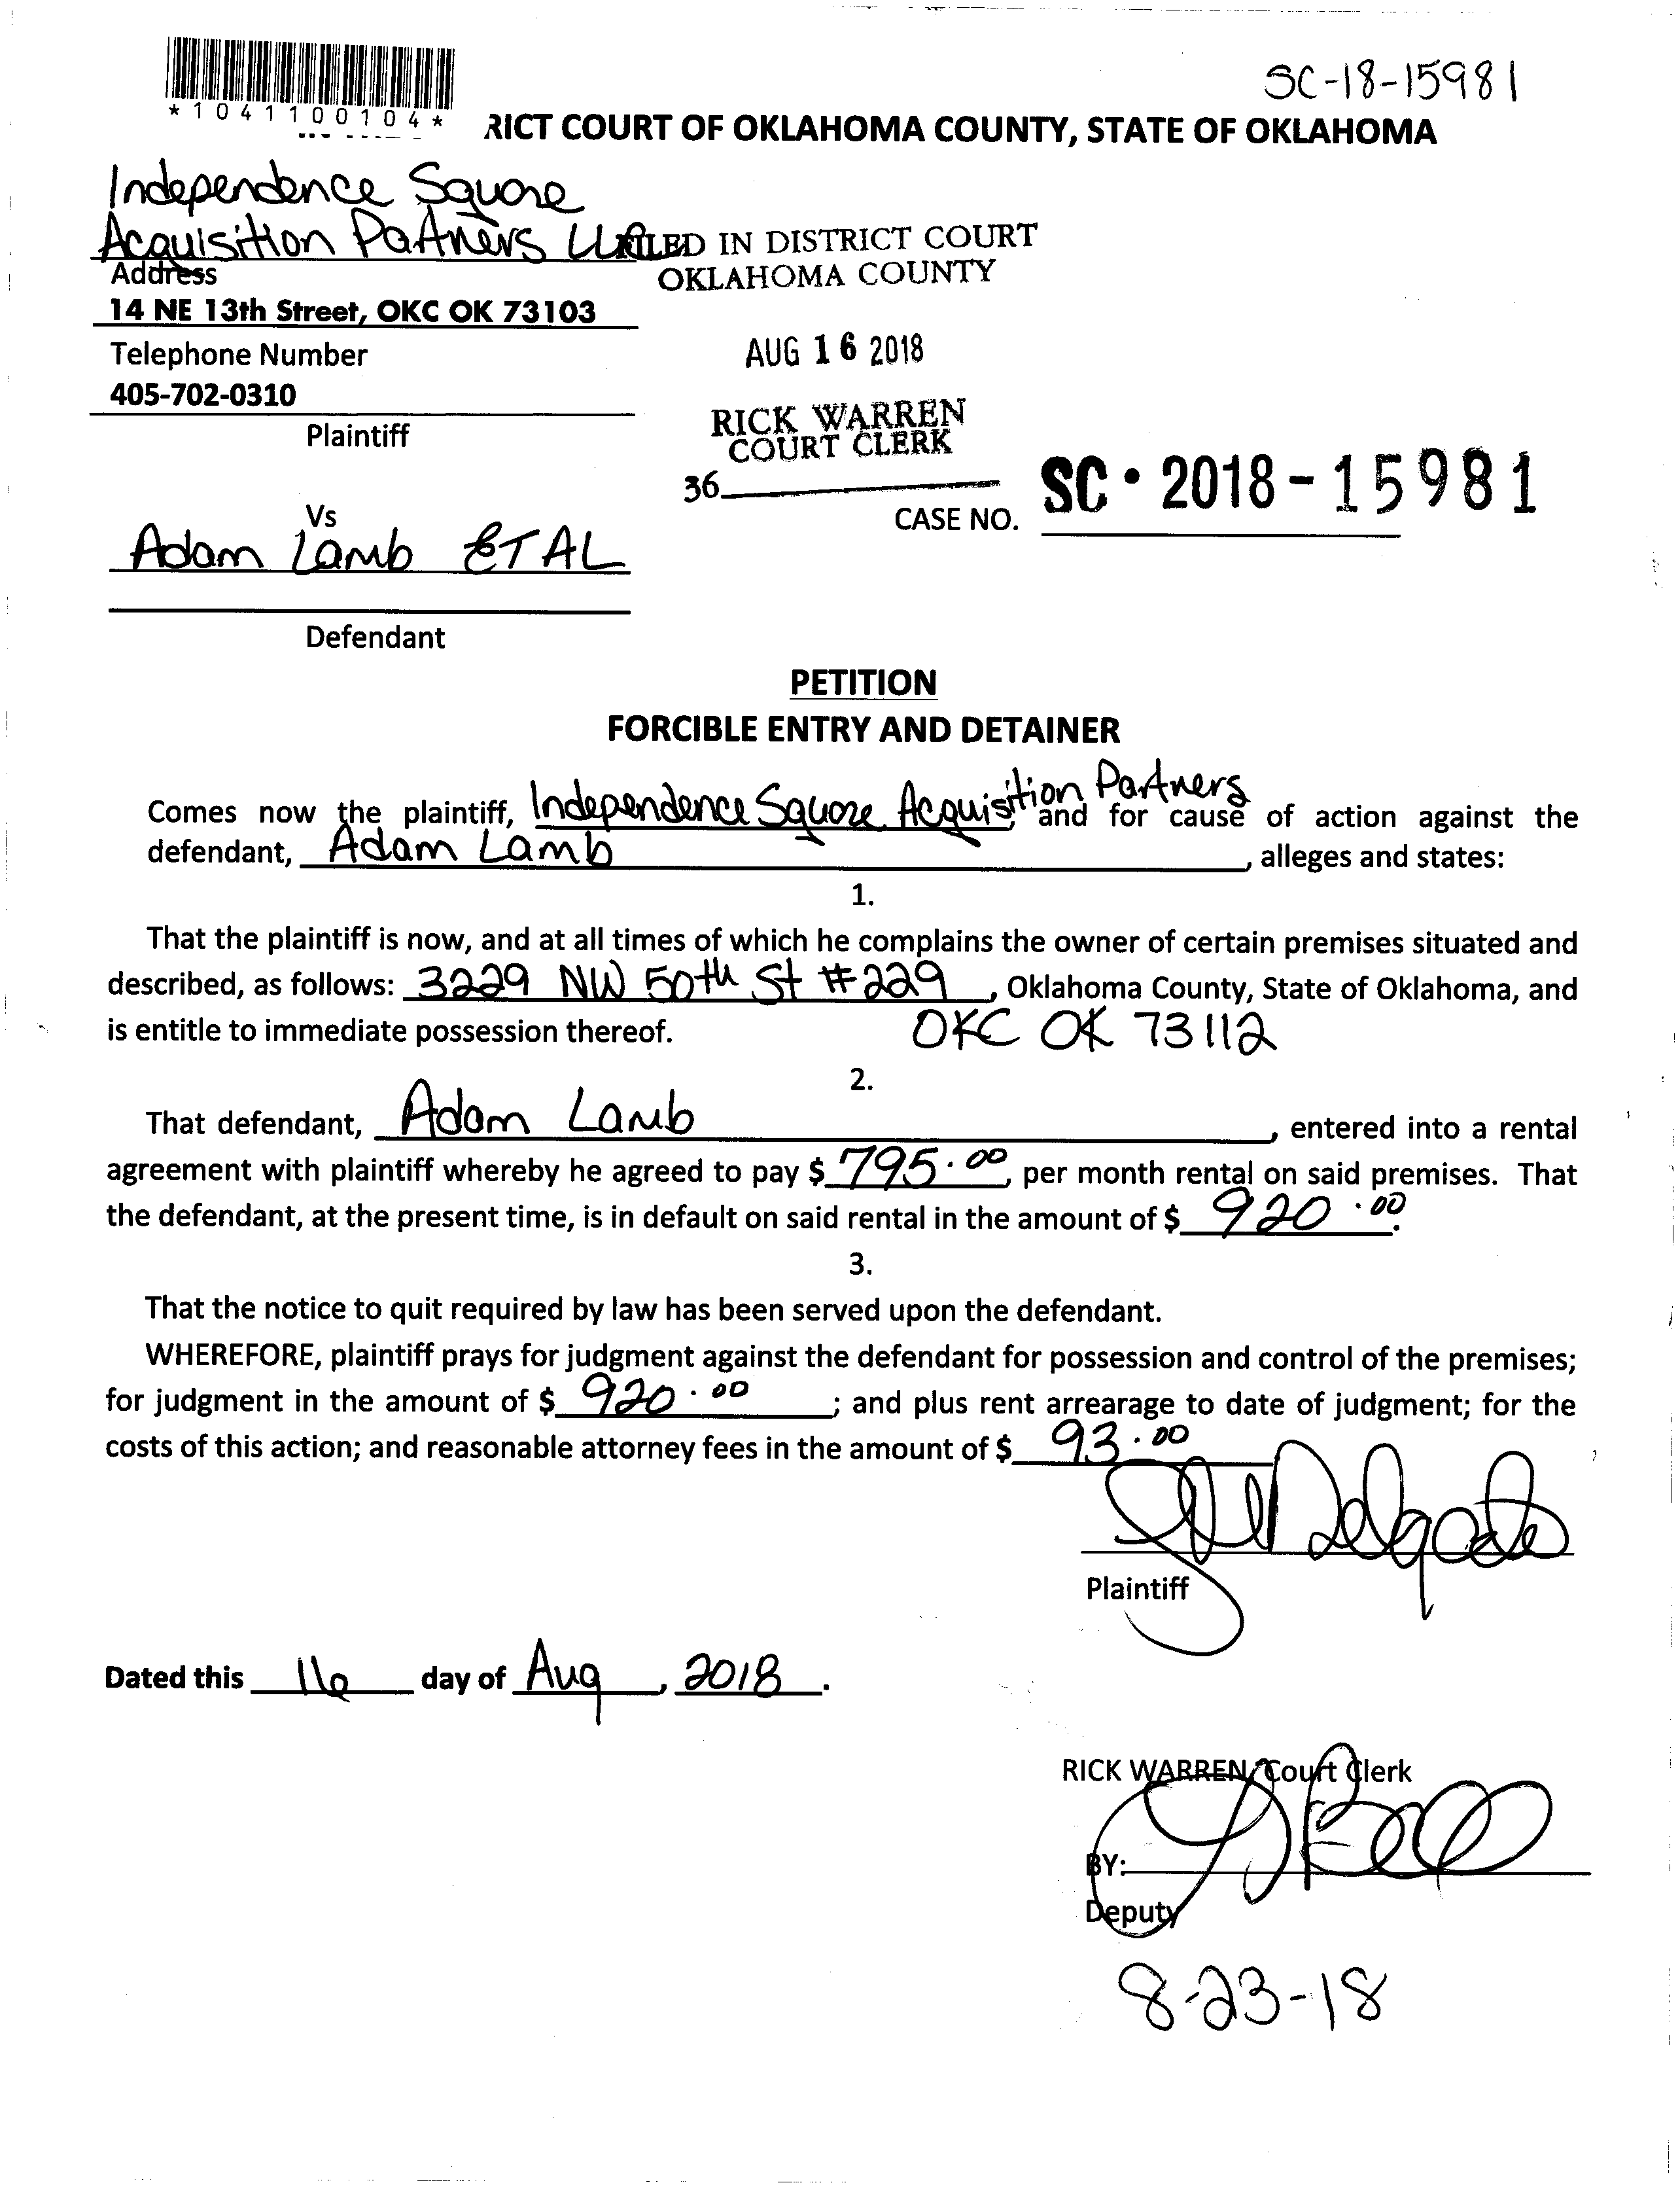 SC-18-15981
*1041100104*
RICT COURT OF OKLAHOMA COUNTY, STATE OF OKLAHOMA
Independence Square
Acquisition Partners LLC
FILED IN DISTRICT COURT
OKLAHOMA COUNTY
Address
14 NE 13th Street, OKC OK 73103
Telephone Number
405-702-0310
Plaintiff
AUG 16 2018
RICK WARREN
COURT CLERK
36
CASE NO. SC • 2018-15981
Vs
Adam Lamb ETAL
Defendant
PETITION
FORCIBLE ENTRY AND DETAINER
Comes now the plaintiff, Independence Square Acquisition Partners, and for cause of action against the
defendant, Adam Lamb, alleges and states:
1.
That the plaintiff is now, and at all times of which he complains the owner of certain premises situated and
described, as follows: 3229 NW 50th St #229, Oklahoma County, State of Oklahoma, and
is entitle to immediate possession thereof. OKC OK 73112
2.
That defendant, Adam Lamb, entered into a rental
agreement with plaintiff whereby he agreed to pay $ 795.00, per month rental on said premises. That
the defendant, at the present time, is in default on said rental in the amount of $ 920.00.
3.
That the notice to quit required by law has been served upon the defendant.
WHEREFORE, plaintiff prays for judgment against the defendant for possession and control of the premises;
for judgment in the amount of $ 920.00; and plus rent arrearage to date of judgment; for the
costs of this action; and reasonable attorney fees in the amount of $ 93.00
Delgado
Plaintiff
Dated this 16 day of Aug, 2018.
RICK WARREN, Court Clerk
BY:
Deputy
8-23-18